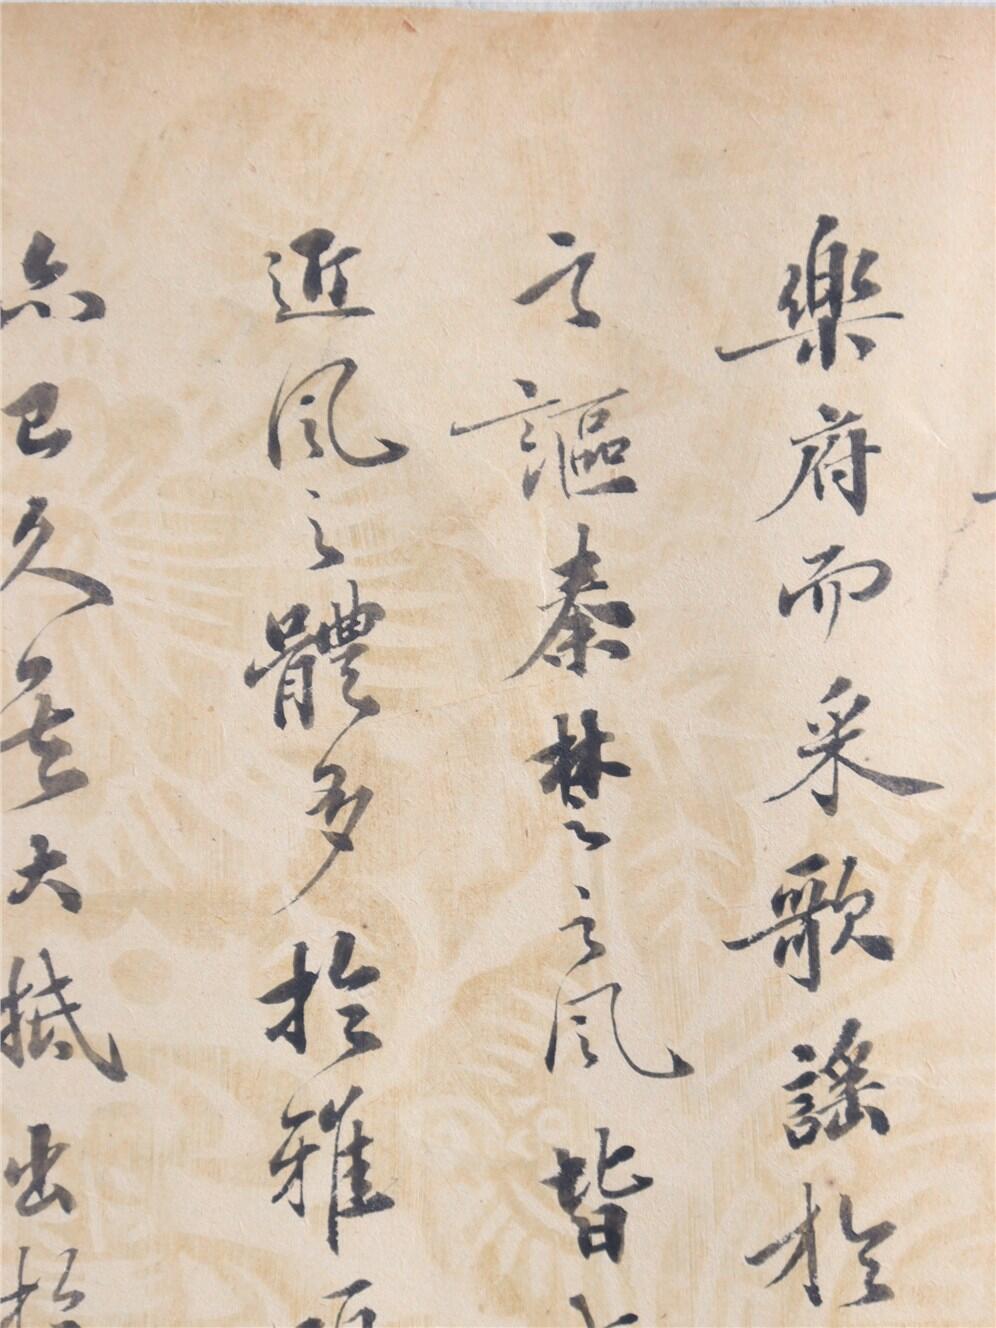 樂府而采歌謠於
之謳秦楚之風皆
近風之體多於雅
亦已久矣大抵出於